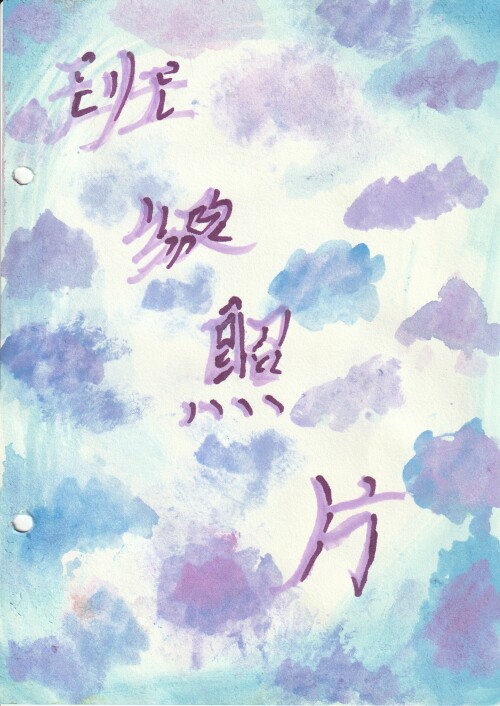 班級照片